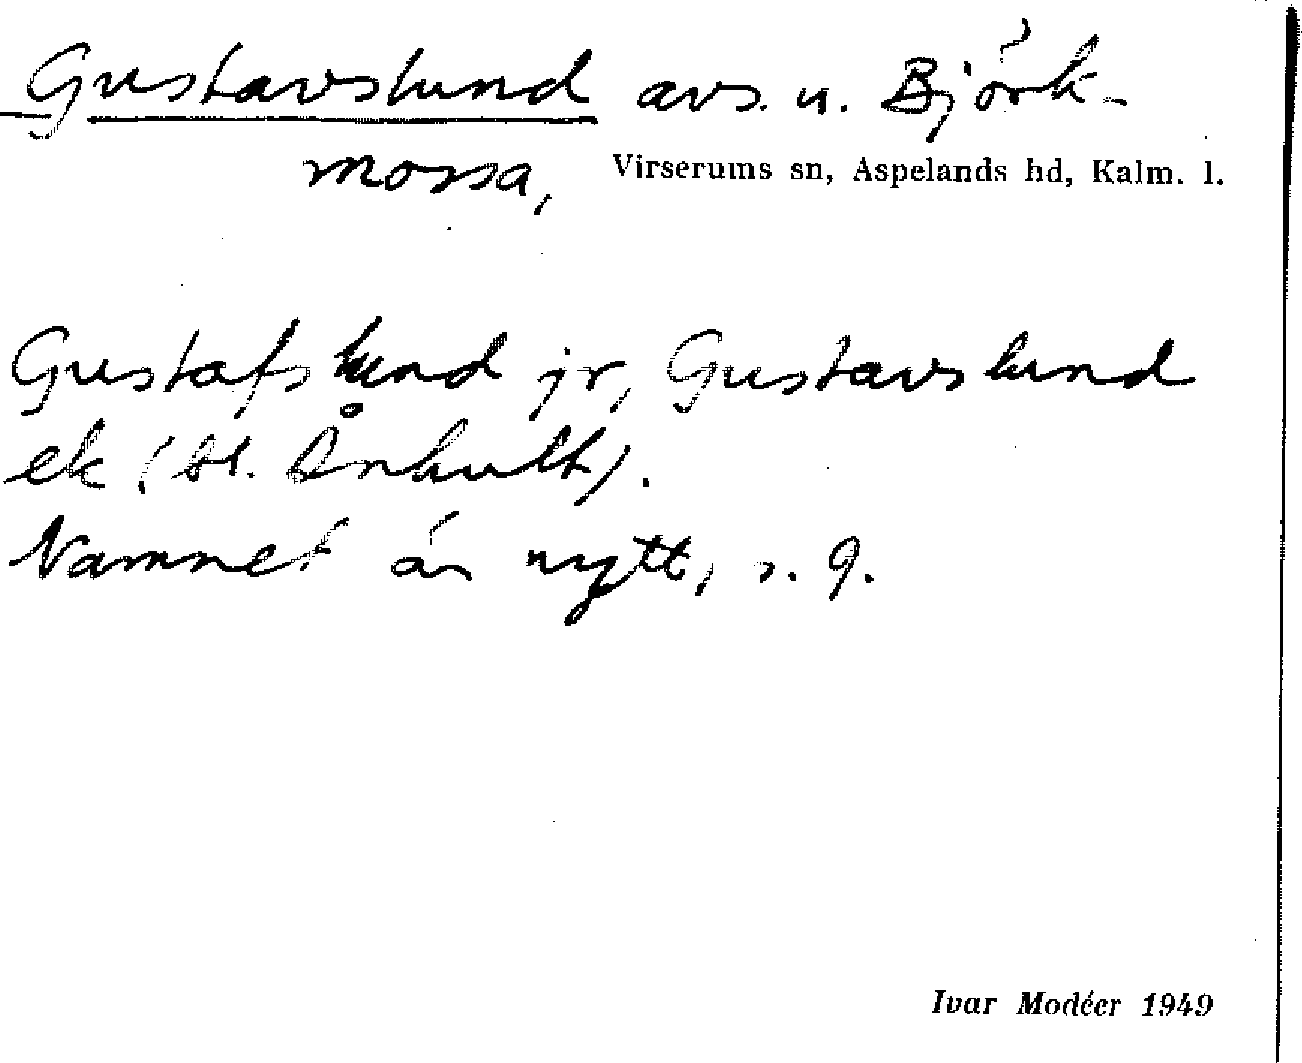 Gustavslund avs. u. Björk-
mossa, Virserums sn, Aspelands hd, Kalm. l.
Gustafslund jr, Gustavslund
ek (bl. Ånhult).
Namnet är nytt, s. g.
Ivar Modéer 1949